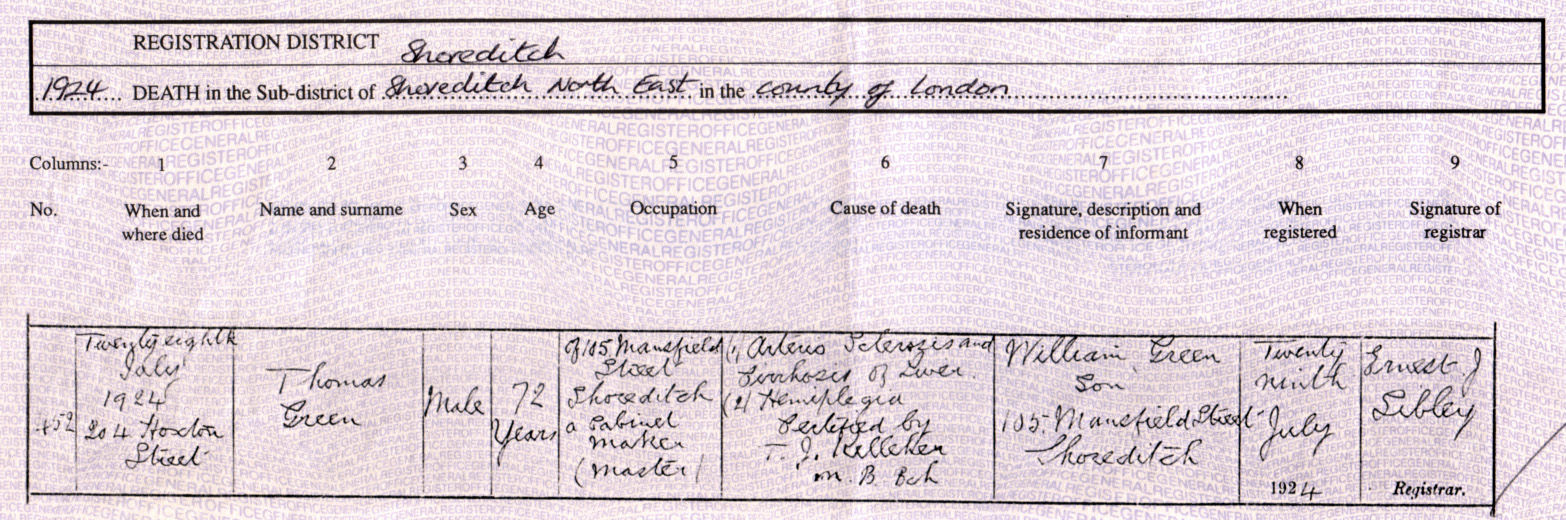 REGISTRATION DISTRICT Shoreditch
1924 DEATH in the Sub-district of Shoreditch North East in the county of London
Columns:- 1 2 3 4 5 6 7 8 9
No. When and where died Name and surname Sex Age Occupation Cause of death Signature, description and residence of informant When registered Signature of registrar
Twenty eighth
July
1924
204 Hoxton
Street
Thomas
Green
Male
72
Years
of 105 Mansfield
Street
Shoreditch
a Cabinet
Maker
(Master)
(1) Arterio Sclerozis and
Cirrhosis of Liver.
(2) Hemiplegia
Certified by
T. J. Kelleher
M. B. Bch
William Green
Son
105 Mansfield Street
Shoreditch
Twenty
ninth
July
1924
Ernest J
Sibley
Registrar.